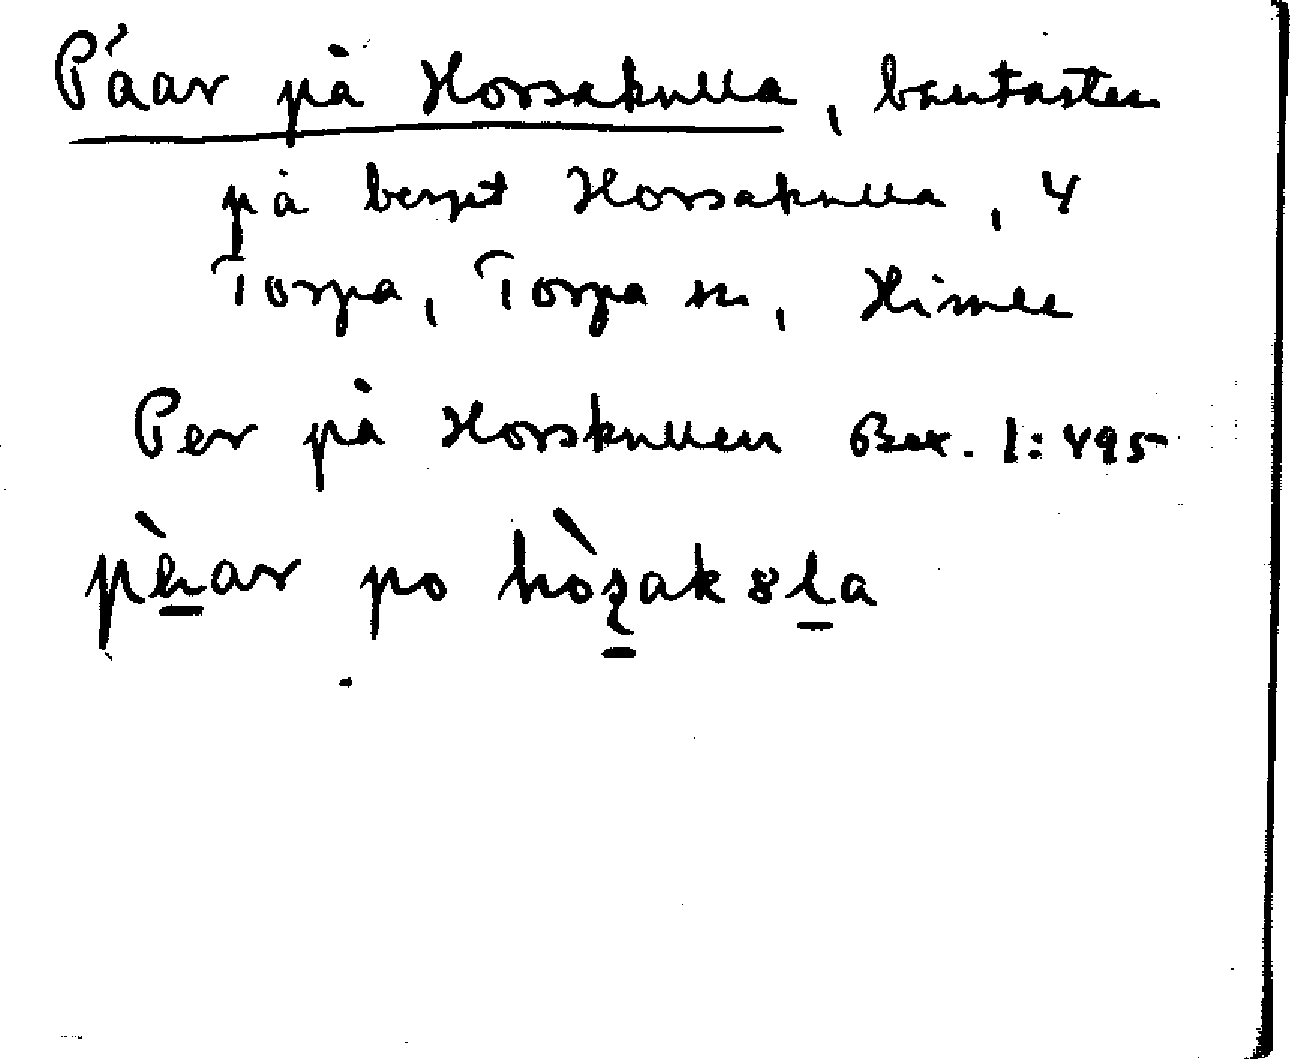 Páar på Horsakulla, bautasten
på berget Horsakulla, 4
Torpa, Torpa sn, Himle
Per på Horskullen Bex. 1:495
po